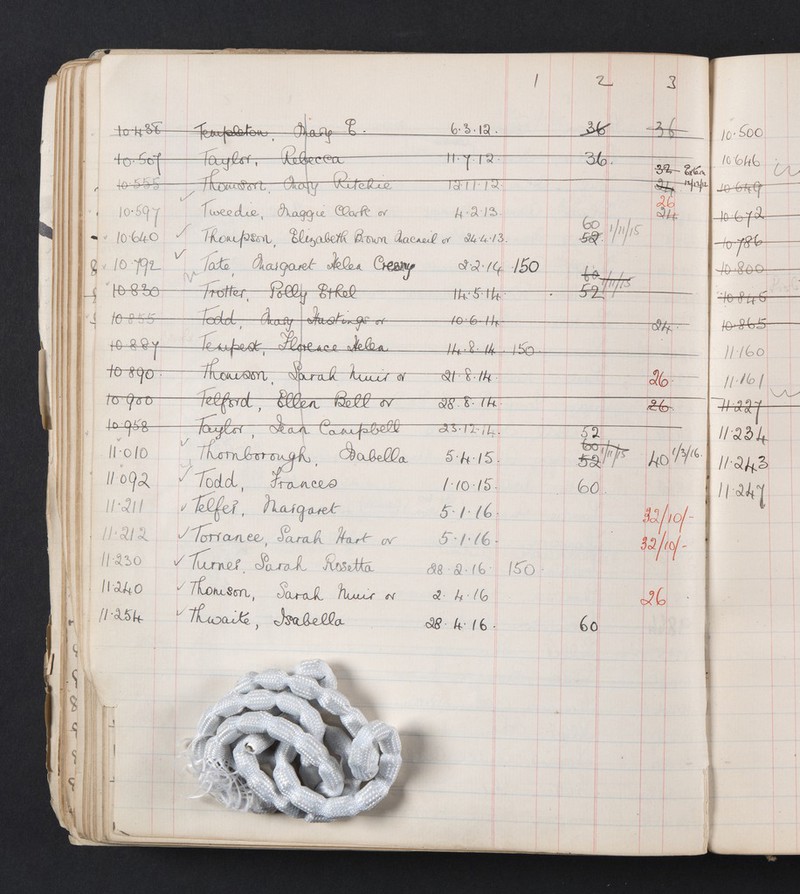 1 2 3
10.438 Templeton, Mary E. 6.3.12. 36 36
10.507 Taylor, Rebecca 11.7.12. 36. 32
10.555 Thomson, Mary Ritchie 12.11.12 24
10.597 Tweedie, Maggie Clark or 4.2.13 26 24
10.640 Thompson, Elizabeth Brown Macneil or 24.4.13. 60 1/11/15 52
10.792 Tate, Margaret Helen Creany 2.2.14 150
10.830 Trotter, Polly Ethel 14.5.14 60 1/11/15 52
10.855 Todd, Mary Hastings or 10.6.14 24.
10.887 Tempest, Florence Helen 14.8.14 150.
10.890. Thomson, Sarah Muir or 21.8.14 26.
10.900 Telford, Ellen Bell or 28.8.14 26.
10.958 Taylor, Jean Campbell 23.12.14. 52
11.010 Thornborough, Isabella 5.4.15. 60 1/11/15 52 40 1/3/16.
11.092 Todd, Frances 1.10.15. 60
11.211 Telfer, Margaret 5.1.16. 32/10/-
11.212 Torrance, Sarah Hart or 5.1.16. 32/10/-
11.230 Turner, Sarah Rosetta 28.2.16. 150.
11.240 Thomson, Sarah Muir or 2.4.16 26
11.254 Thwaite, Isabella 28.4.16. 60
10.500
10.646
10.649
10.672
10.786
10.800
10.845
10.865
11.160
11.161
11.227
11.234
11.243
11.247